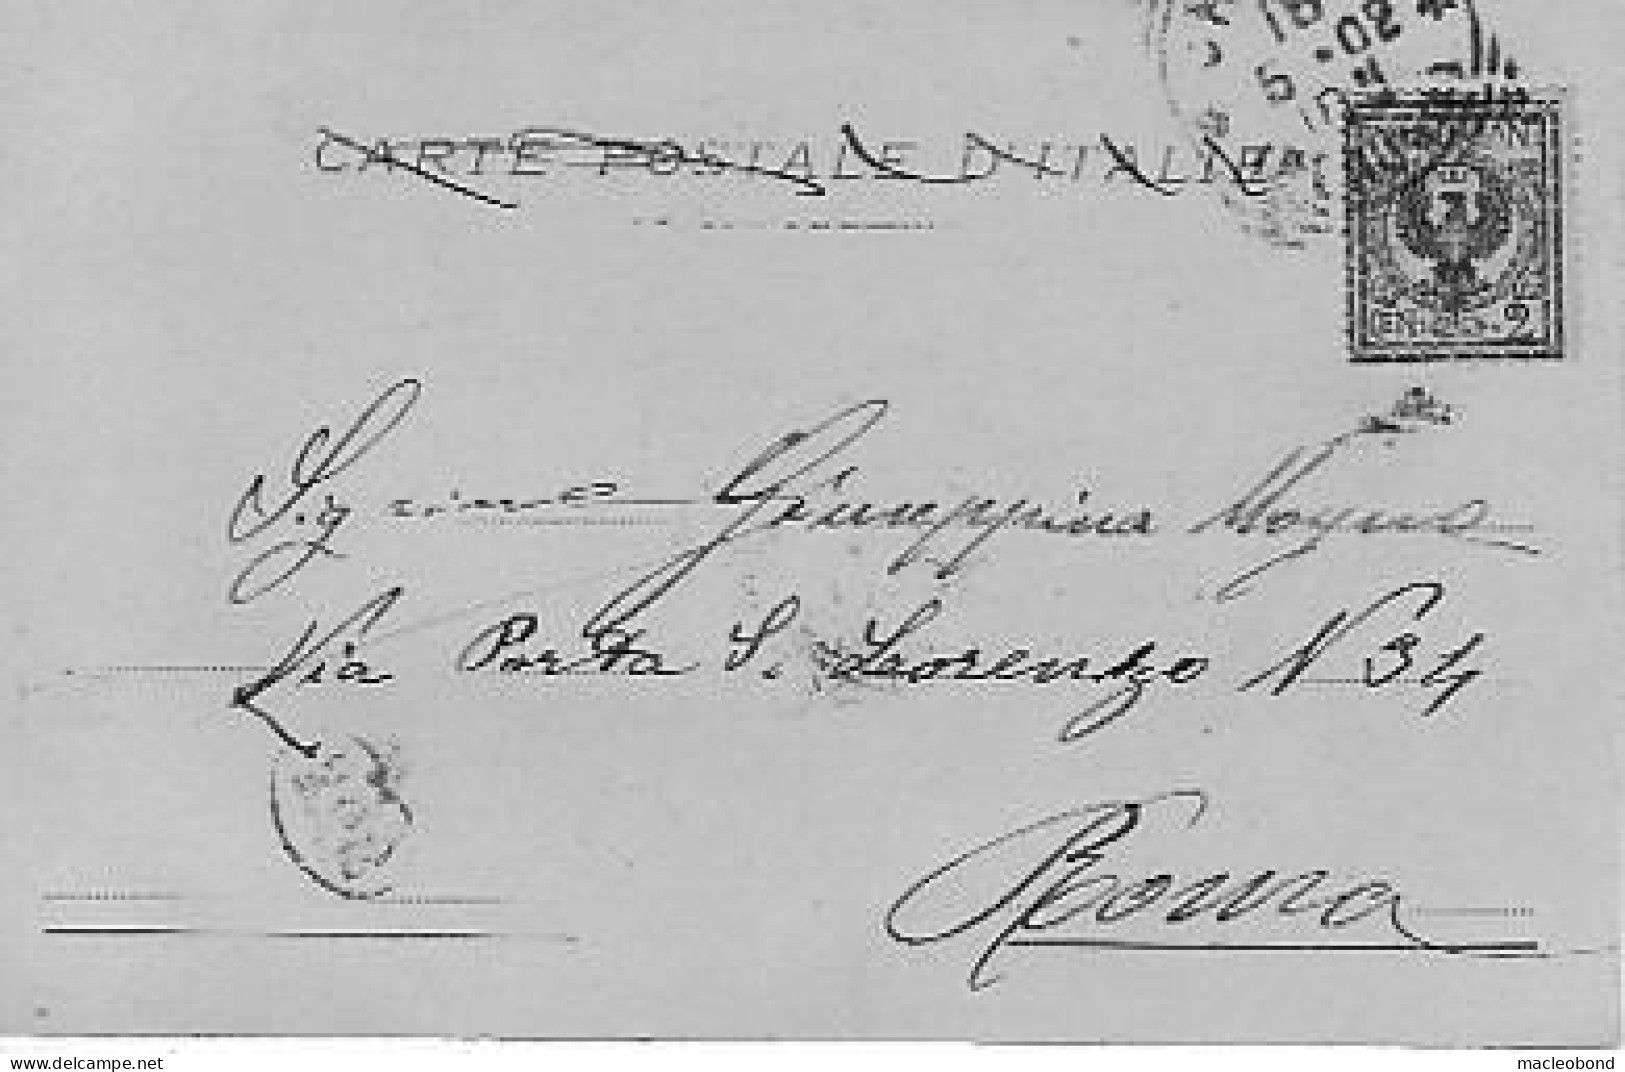 16
5 - 02
CARTE POSTALE D'ITALIE
CENT. 2
Sig.rina Giuseppina
Via Porta S. Lorenzo N 34
Roma
delcampe.net
macleobond